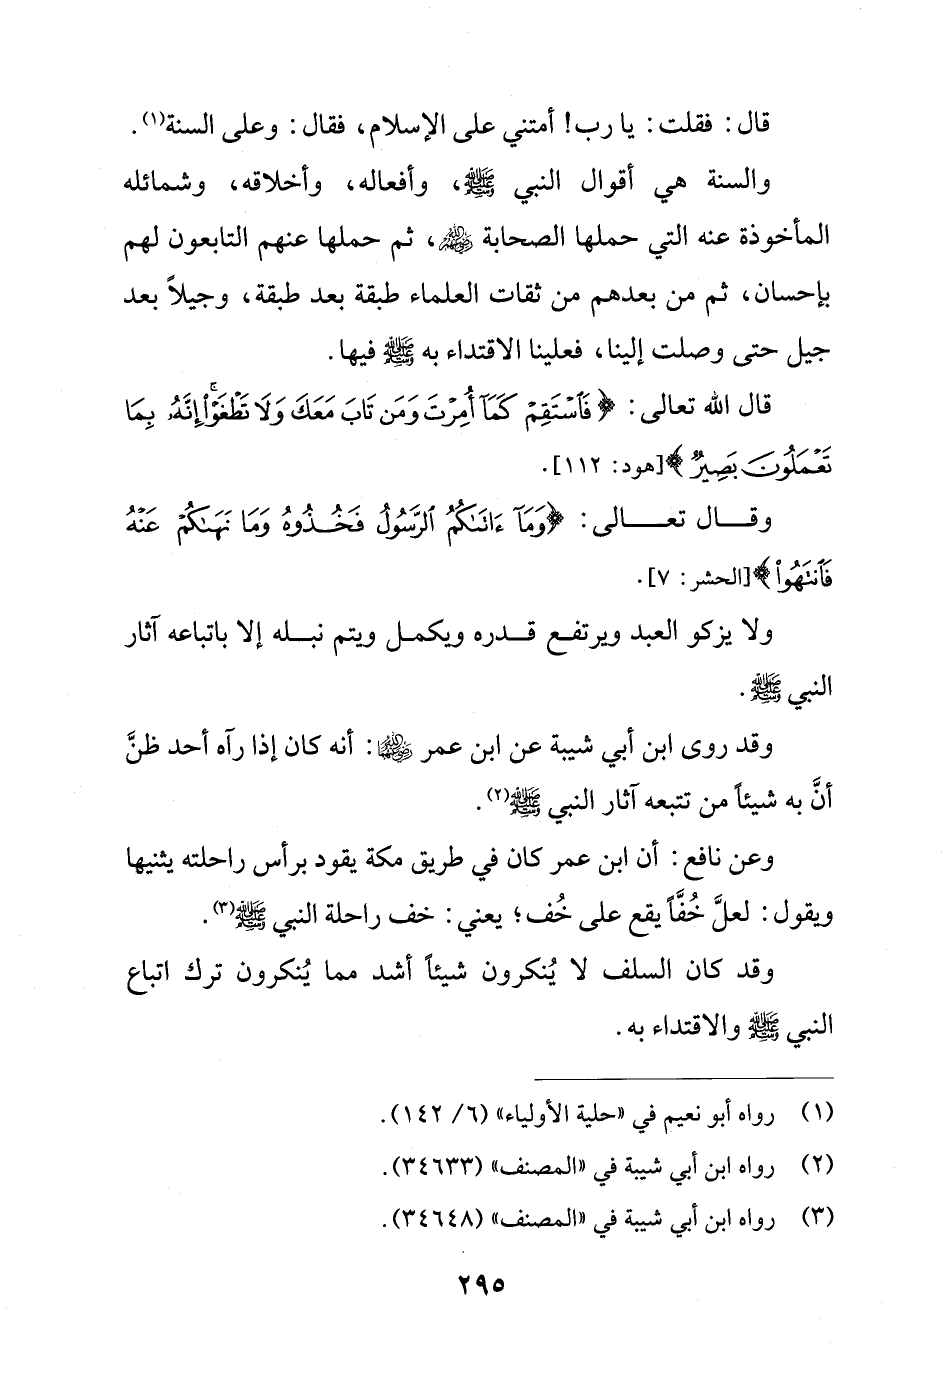 قال: فقلت: يا رب! أمتني على الإسلام، فقال: وعلى السنة(١).
والسنة هي أقوال النبي ﷺ، وأفعاله، وأخلاقه، وشمائله
المأخوذة عنه التي حملها الصحابة رضي الله عنهم، ثم حملها عنهم التابعون لهم
بإحسان، ثم من بعدهم من ثقات العلماء طبقة بعد طبقة، وجيلاً بعد
جيل حتى وصلت إلينا، فعلينا الاقتداء به ﷺ فيها.
قال الله تعالى: ﴿فَٱسْتَقِمْ كَمَآ أُمِرْتَ وَمَن تَابَ مَعَكَ وَلَا تَطْغَوْا۟ ۚ إِنَّهُۥ بِمَا
تَعْمَلُونَ بَصِيرٌ﴾ [هود: ١١٢].
وقال تعالى: ﴿وَمَآ ءَاتَىٰكُمُ ٱلرَّسُولُ فَخُذُوهُ وَمَا نَهَىٰكُمْ عَنْهُ
فَٱنتَهُوا۟﴾ [الحشر: ٧].
ولا يزكو العبد ويرتفع قدره ويكمل ويتم نبله إلا باتباعه آثار
النبي ﷺ.
وقد روى ابن أبي شيبة عن ابن عمر رضي الله عنهما: أنه كان إذا رآه أحد ظنَّ
أنَّ به شيئاً من تتبعه آثار النبي ﷺ(٢).
وعن نافع: أن ابن عمر كان في طريق مكة يقود برأس راحلته يثنيها
ويقول: لعلَّ خُفَّاً يقع على خُف؛ يعني: خف راحلة النبي ﷺ(٣).
وقد كان السلف لا يُنكرون شيئاً أشد مما يُنكرون ترك اتباع
النبي ﷺ والاقتداء به.
(١) رواه أبو نعيم في «حلية الأولياء» (٦/ ١٤٢).
(٢) رواه ابن أبي شيبة في «المصنف» (٣٤٦٣٣).
(٣) رواه ابن أبي شيبة في «المصنف» (٣٤٦٤٨).
٢٩٥